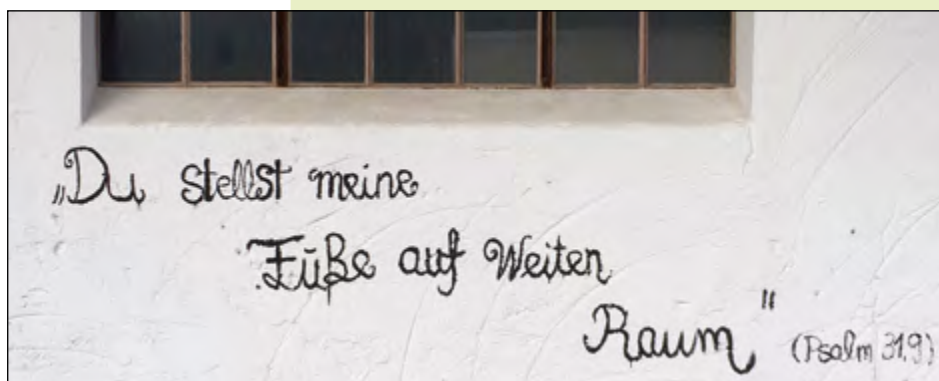 „Du stellst meine
Füße auf Weiten
Raum" (Psalm 31,9)